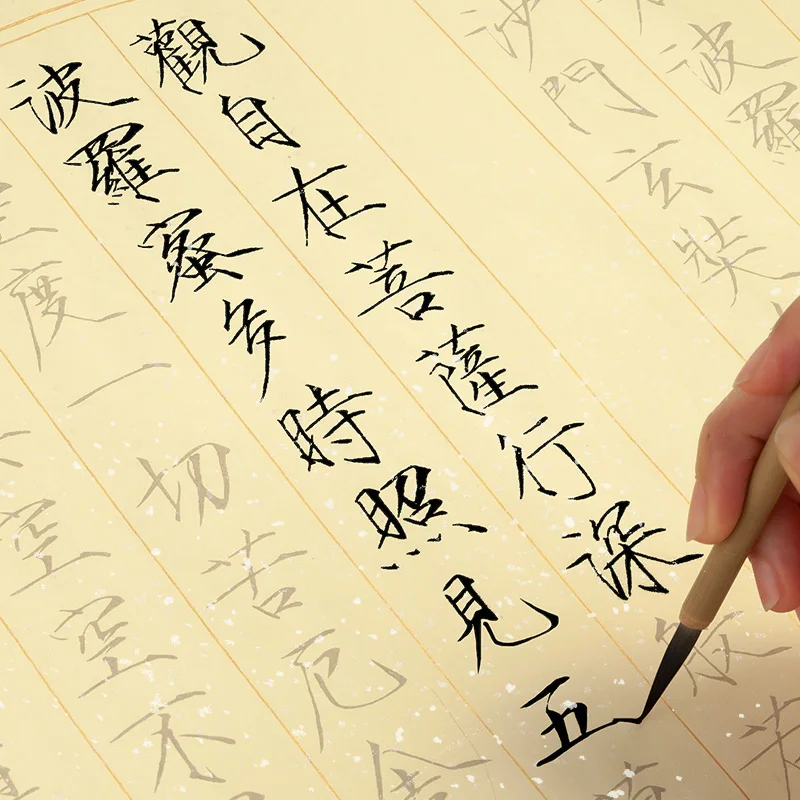 波羅
沙門玄奘
觀自在菩薩行深般若
波羅蜜多時照見五蘊
空度一切苦厄舍
空空不